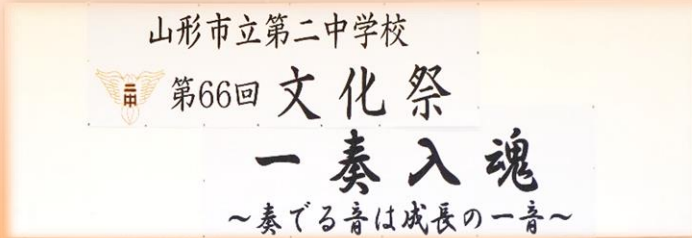 山形市立第二中学校
二中 第66回 文化祭
一奏入魂
～奏でる音は成長の一音～